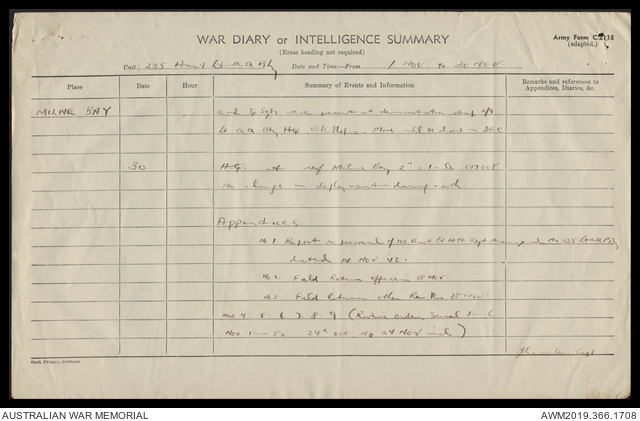 WAR DIARY or INTELLIGENCE SUMMARY
(Erase heading not required)
Army Form C.2118
(adapted.)
Unit 235 Aust Lt A A Bty Date and Time—From 1 NOV To 30 NOV
Place Date Hour Summary of Events and Information Remarks and references to Appendices, Diaries, &c.
MILNE BAY
and Tp Sgts were present at demonstration
Lt AA Bty More will be had in DEC
30 H.Q. at ref Milne Bay 2" = 1 017008
No change in deployment during month
Appendices
No 1 Report on personnel of 113 Aust
dated 14 NOV 42.
No 2 Field Return officers 28 NOV
No 3 Field Return other Ranks 28 NOV
Nos 4. 5. 6 7. 8 9 (Routine Orders Serial
Nos 1 — 50 24th Oct to 24 NOV incl)
Capt
Govt. Printer, Brisbane
AUSTRALIAN WAR MEMORIAL AWM2019.366.1708